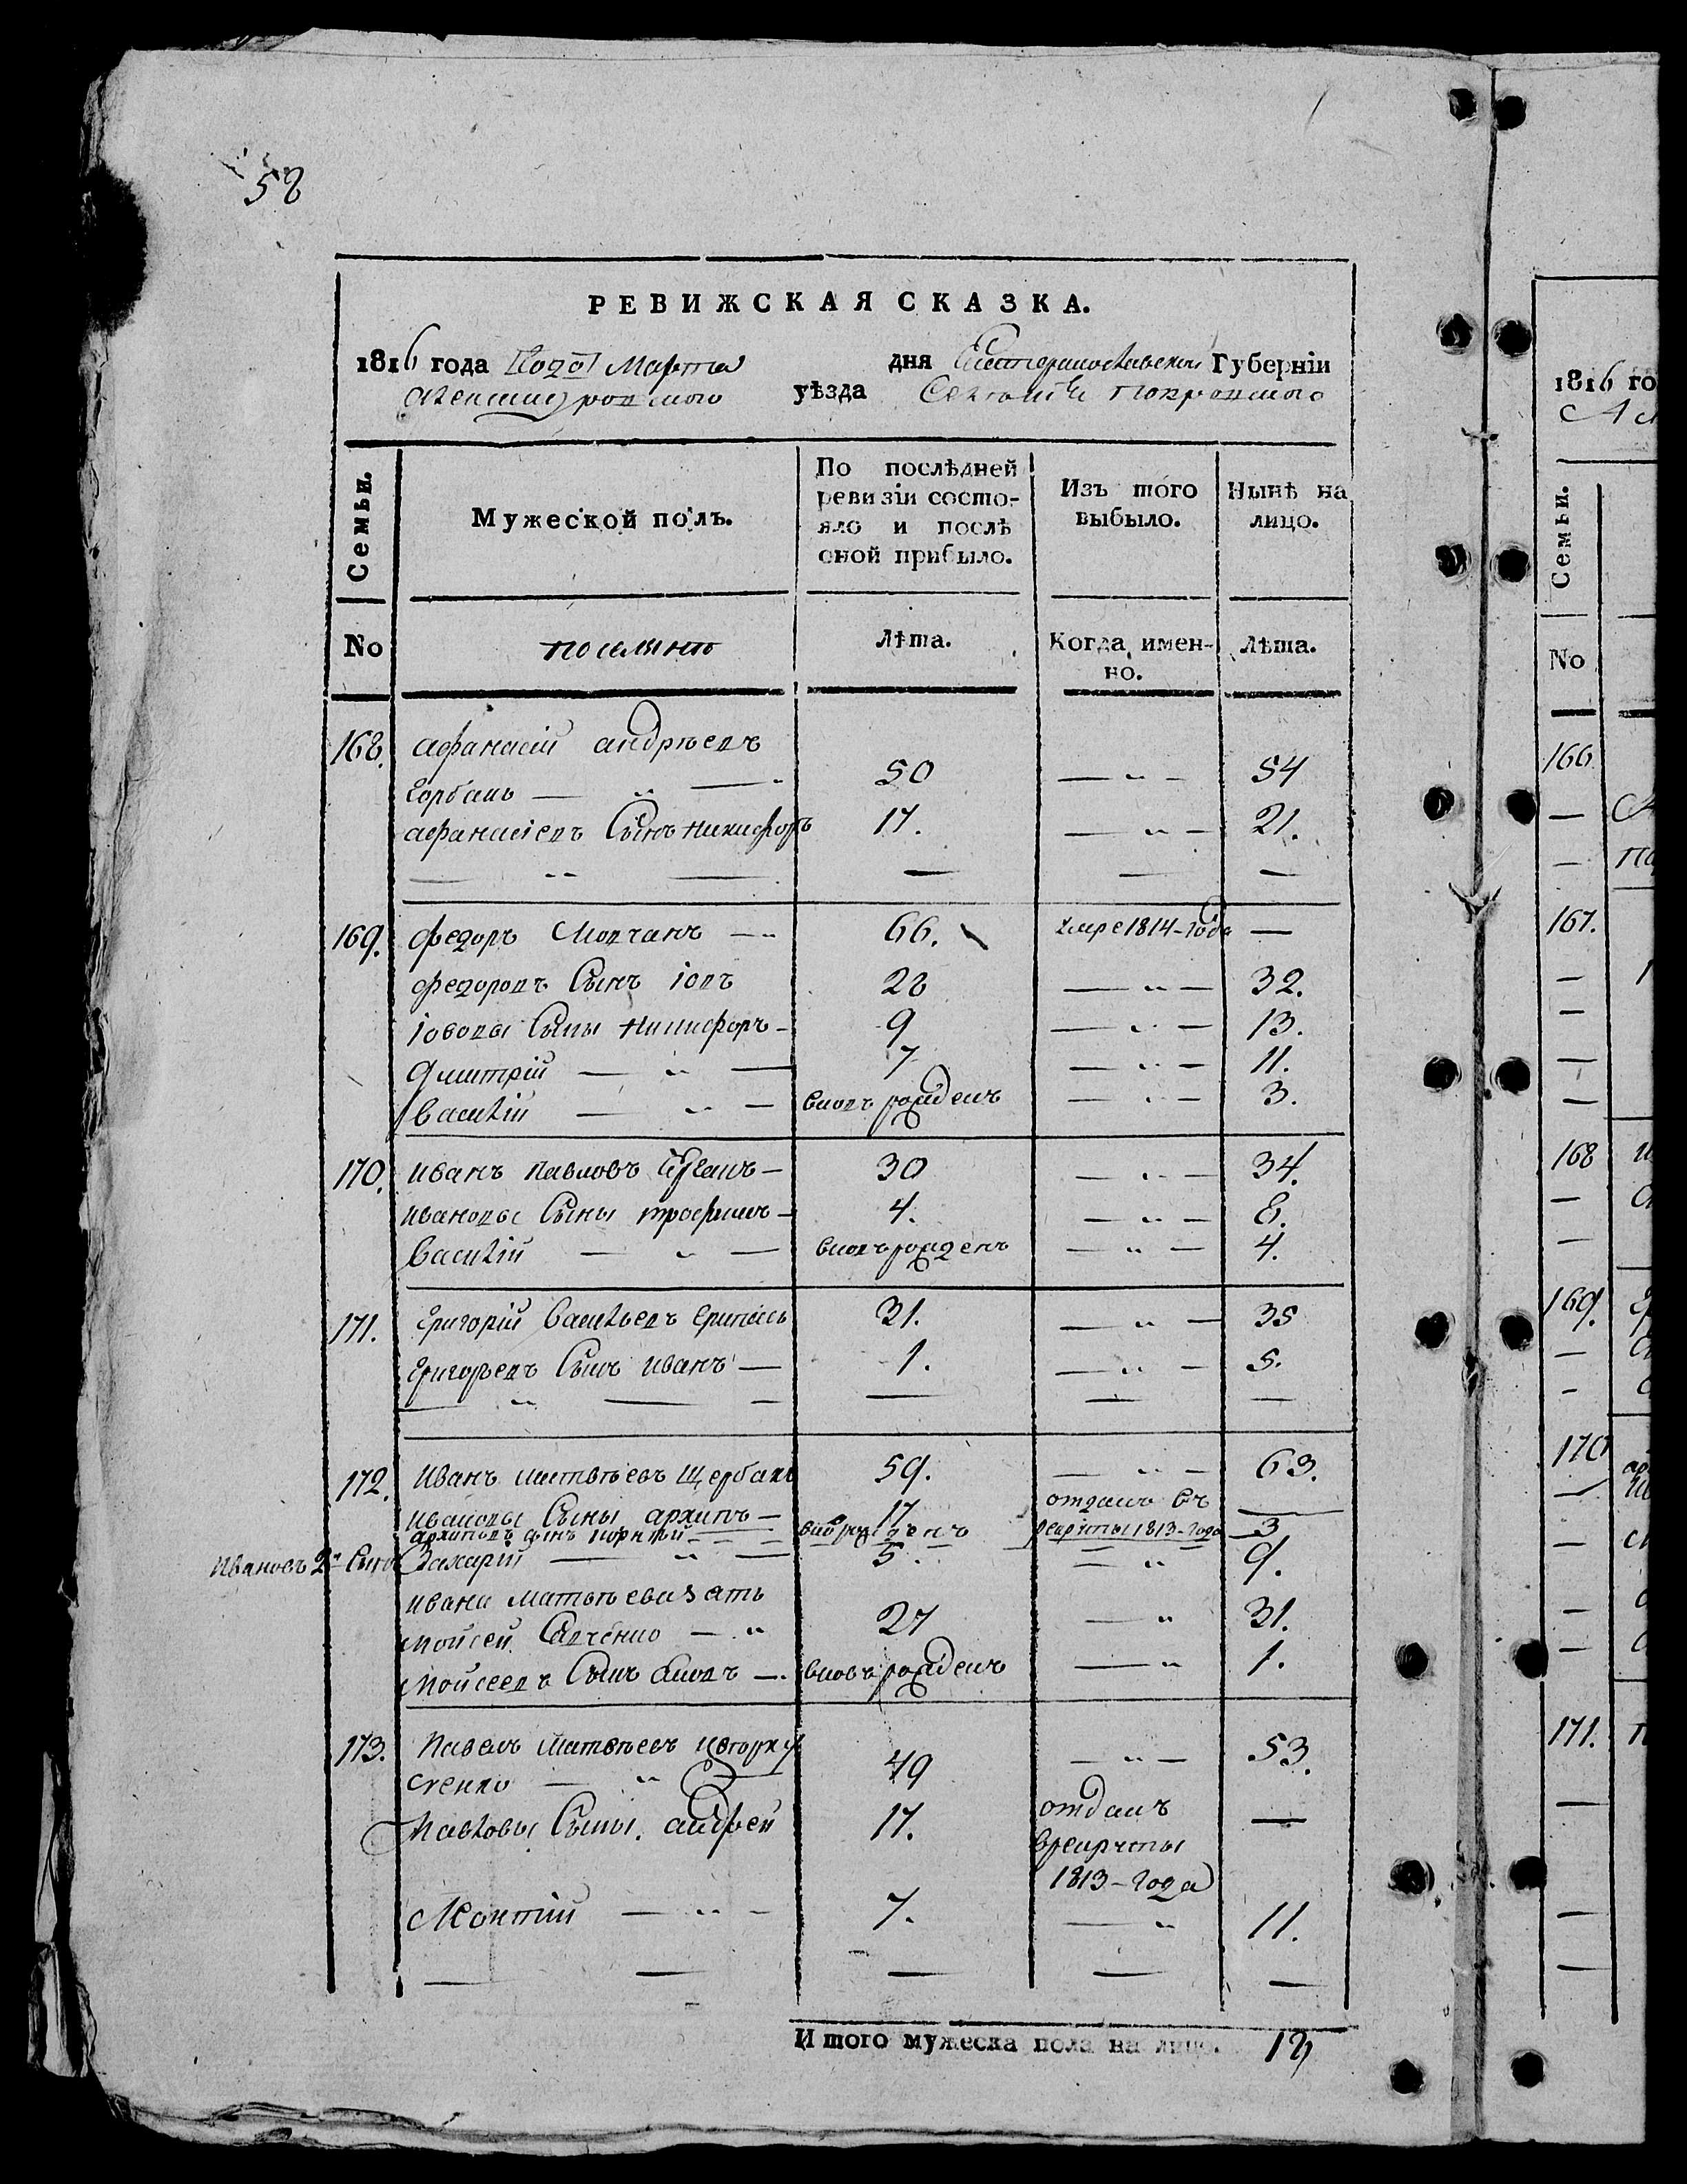 58
РЕВИЖСКАЯ СКАЗКА.
1816 года Марта дня Екатеринославской Губерніи
уѣзда Селенія Покровского
Семьи. Мужеской полъ. По послѣдней ревизіи состояло и послѣ оной прибыло. Изъ того выбыло. Нынѣ на лицо.
No поселянъ Лѣта. Когда имен-но. Лѣта.
168. афанасій андрѣевъ
Горбань — 50 — 54
афанасіевъ Сынъ никифоръ 17. — 21.
169. федоръ Мовчанъ — 66. умре 1814-Года —
федоровъ Сынъ іовъ 28 — 32.
іововы Сыны никифоръ — 9 — 13.
Дмитрій — 7 — 11.
Василій — вновь рожденъ — 3.
170. иванъ павловъ — 30 — 34.
ивановы Сыны трофимъ — 4. — 8.
Василій — вновь рожденъ — 4.
171. Григорій Васильевъ 31. — 35
Григорьевъ Сынъ иванъ — 1. — 5.
172. иванъ матвѣевъ Щербакъ 59. — 63.
ивановы Сыны архипъ — 17 отданъ въ рекруты 1813-Года —
архиповъ сынъ корнѣй — вновь рожденъ — 3
Ивановъ 2й Сынъ Захарій — 5. — 9.
ивана матвѣева зять
мойсей Савченко — 27 — 31.
мойсеевъ Сынъ — вновь рожденъ — 1.
173. павелъ матвѣевъ
49 — 53.
павловы Сыны. андрей 17. отданъ
врекруты
1813-года —
Леонтій — 7. — 11.
Итого мужеска пола на лицо. 18
1816 го
Семьи.
No
166.
167.
168
169.
170
171.